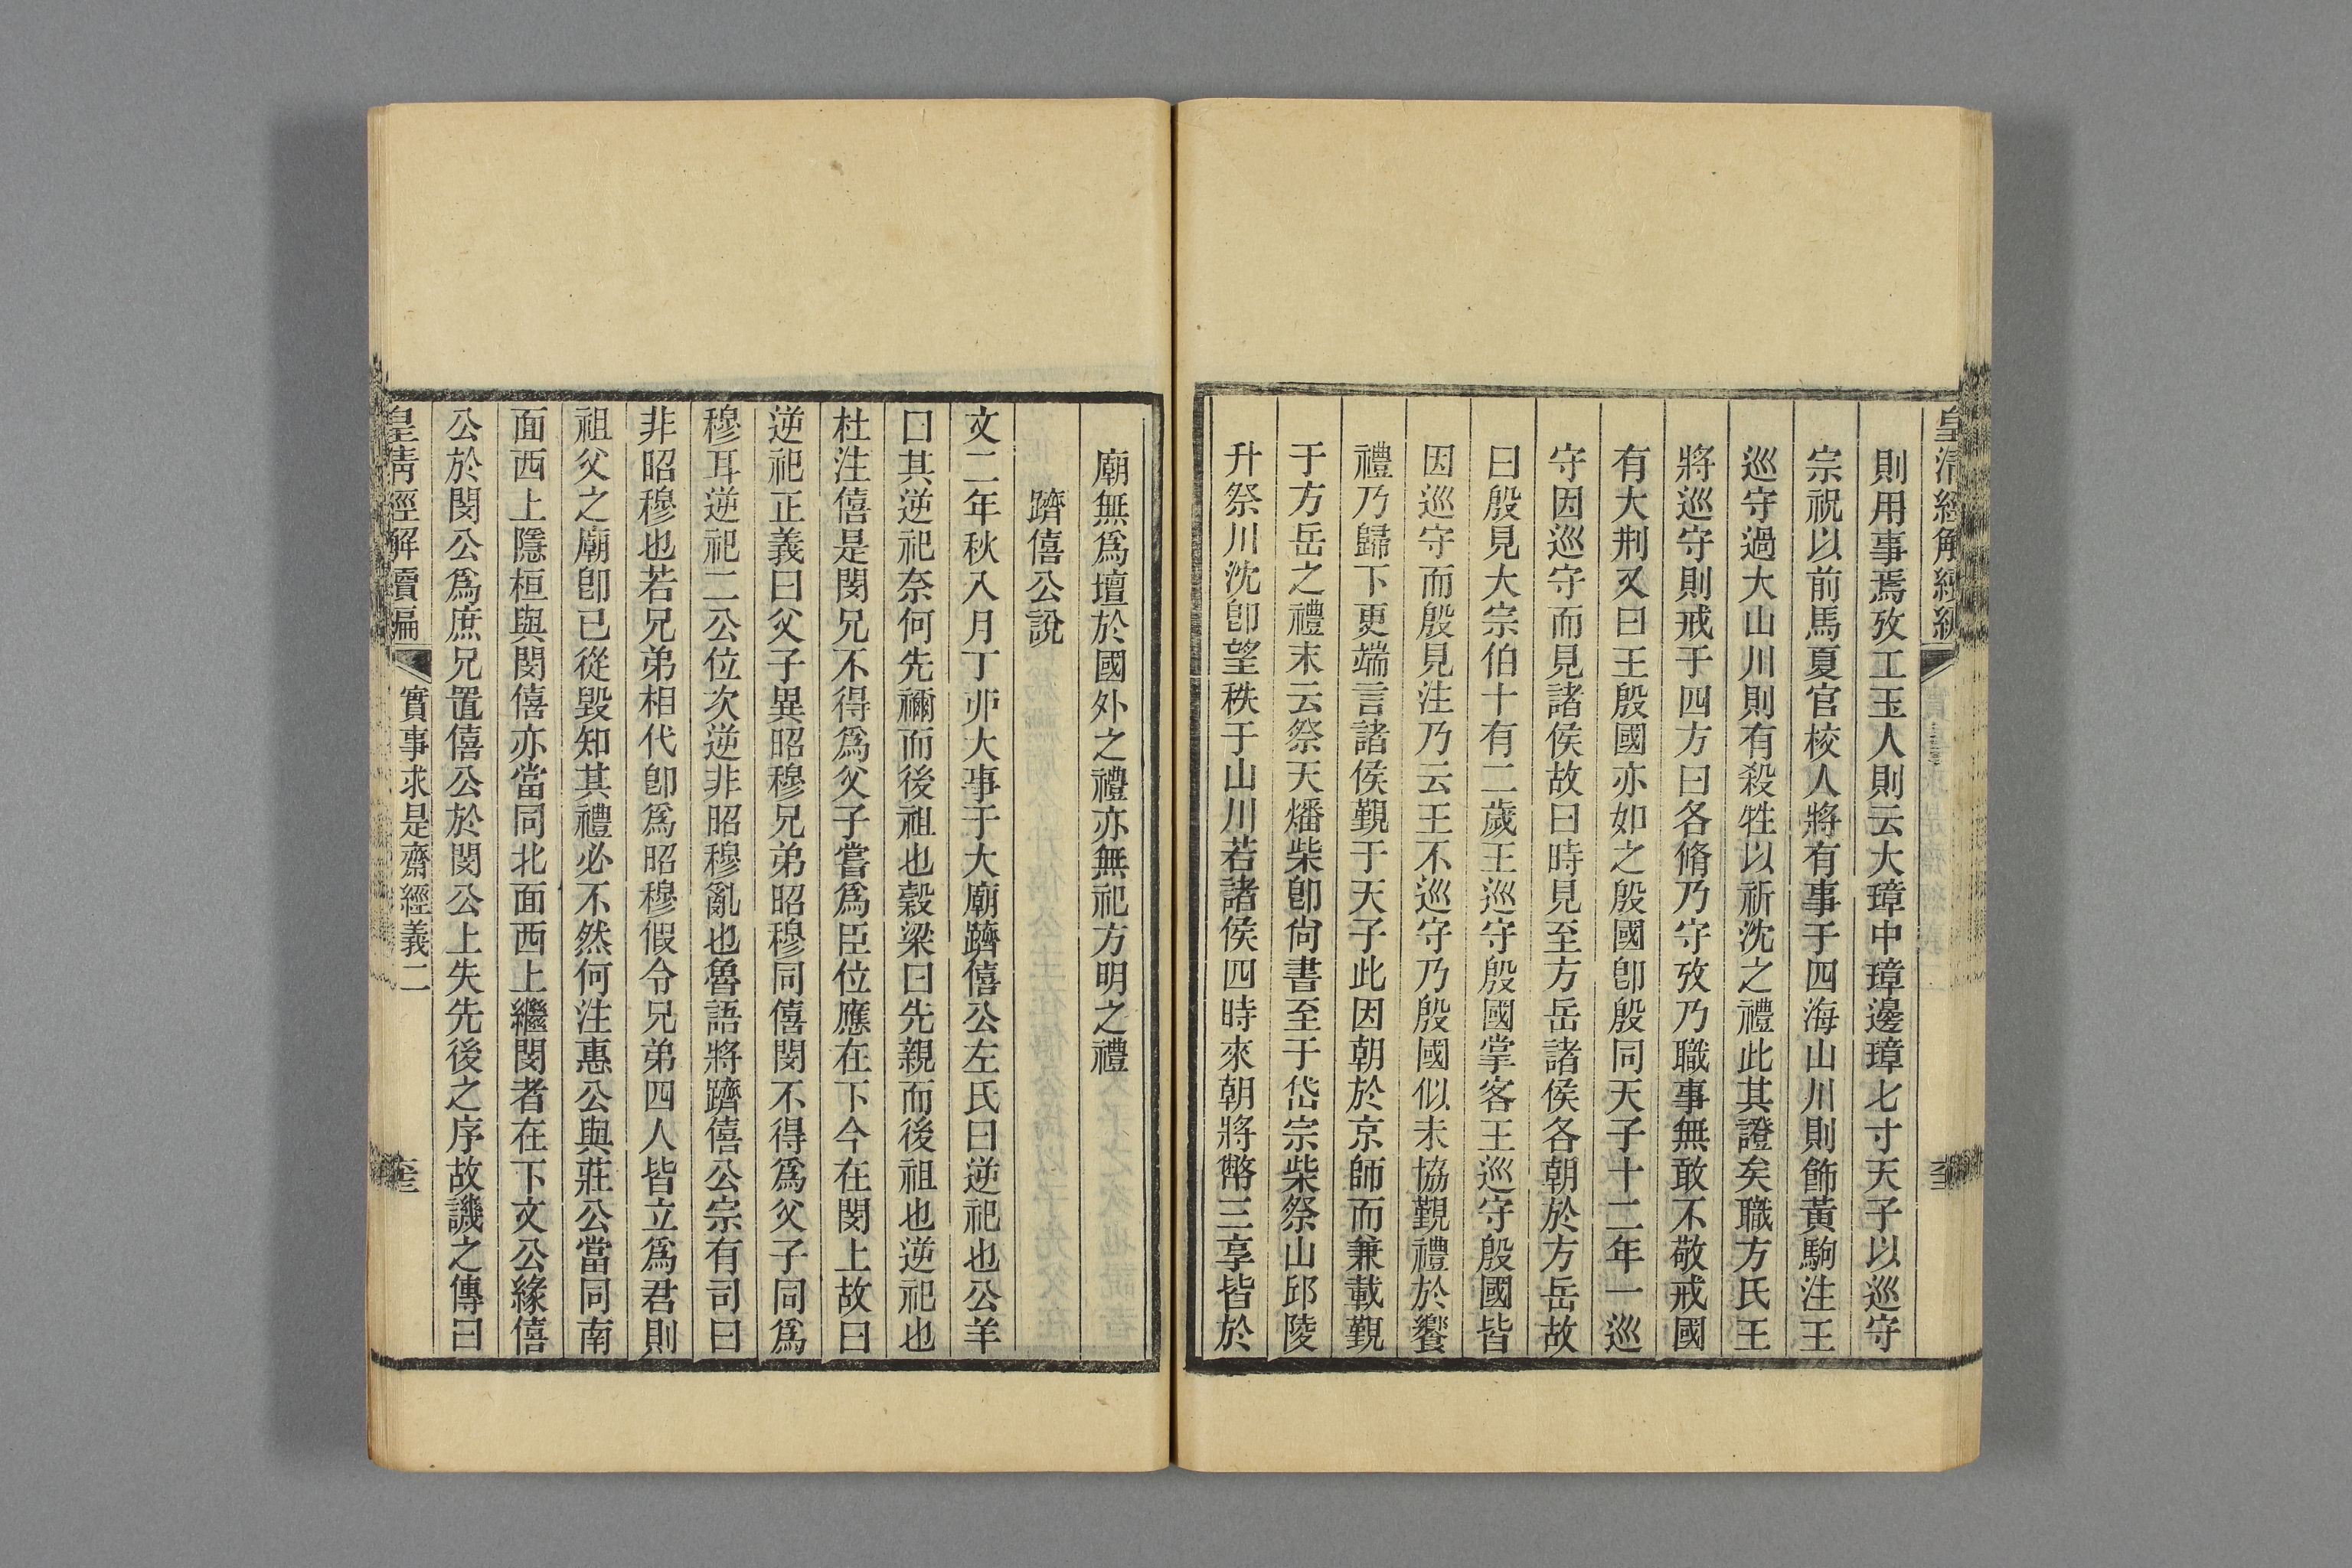 皇清經解續編
則用事焉攷工玉人則云大璋中璋邊璋七寸天子以巡守
宗祝以前馬夏官校人將有事于四海山川則飾黃駒注王
巡守過大山川則有殺牲以祈沈之禮此其證矣職方氏王
將巡守則戒于四方曰各脩乃守攷乃職事無敢不敬戒國
有大荆又曰王殷國亦如之殷國卽殷同天子十二年一巡
守因巡守而見諸侯故曰時見至方岳諸侯各朝於方岳故
曰殷見大宗伯十有二歲王巡守殷國掌客王巡守殷國皆
因巡守而殷見注乃云王不巡守乃殷國似未協覲禮於饗
禮乃歸下更端言諸侯覲于天子此因朝於京師而兼載覲
于方岳之禮末云祭天燔柴卽尙書至于岱宗柴祭山邱陵
升祭川沈卽望秩于山川若諸侯四時來朝將幣三享皆於
廟無爲壇於國外之禮亦無祀方明之禮
躋僖公說
文二年秋八月丁丣大事于大廟躋僖公左氏曰逆祀也公羊
曰其逆祀奈何先禰而後祖也穀梁曰先親而後祖也逆祀也
杜注僖是閔兄不得爲父子嘗爲臣位應在下今在閔上故曰
逆祀正義曰父子異昭穆兄弟昭穆同僖閔不得爲父子同爲
穆耳逆祀二公位次逆非昭穆亂也魯語將躋僖公宗有司曰
非昭穆也若兄弟相代卽爲昭穆假令兄弟四人皆立爲君則
祖父之廟卽已從毀知其禮必不然何注惠公與莊公當同南
面西上隱桓與閔僖亦當同北面西上繼閔者在下文公緣僖
公於閔公爲庶兄置僖公於閔公上失先後之序故譏之傳曰
皇淸經解續編 實事求是齋經義二